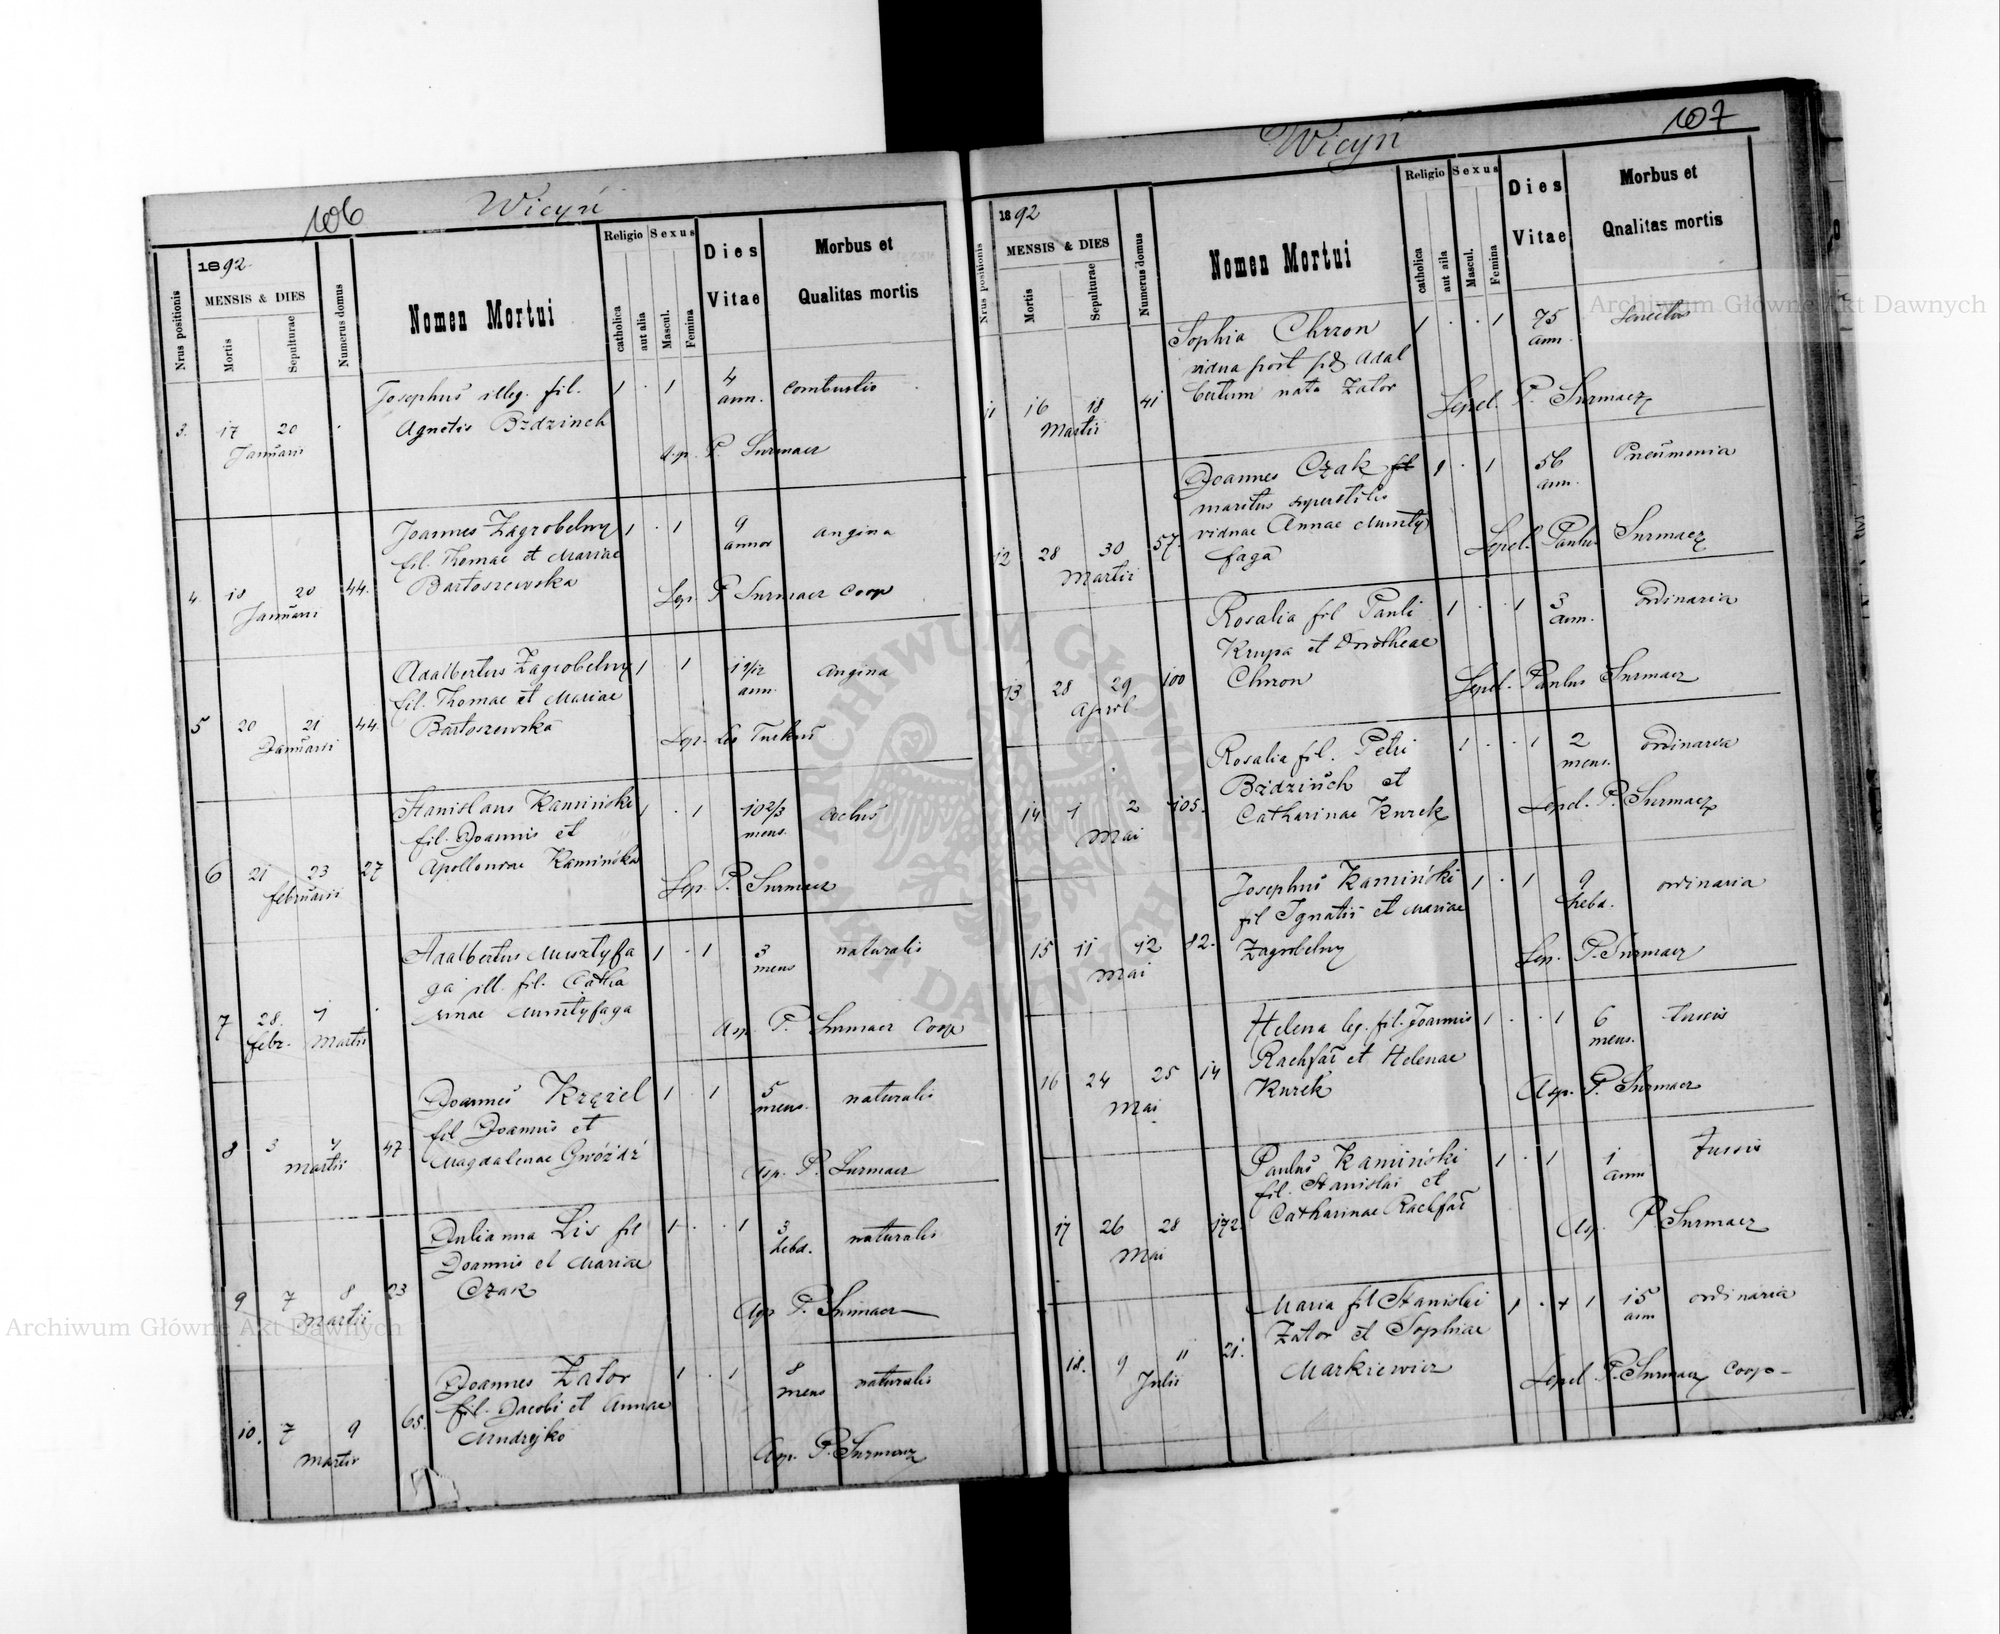 106 Wicyń
1892.
Nrus positionis
MENSIS & DIES
Mortis
Sepulturae
Numerus domus
Nomen Mortui
Religio
catholica
aut alia
Sexus
Mascul.
Femina
Dies
Vitae
Morbus et
Qualitas mortis
3. 17 20
Januarii
Josephus illeg. fil. 1 · 1 4 combustio
Agnetis Bzdziuch ann.
P. Surmacz
4. 18 20 44.
Januarii
Joannes Zagrobelny 1 · 1 9 angina
fil. Thomae et Mariae annor
Bartoszewska
Sep. P. Surmacz Coop
5 20 21 44.
Januarii
Adalbertus Zagrobelny 1 · 1 1 9/12 angina
fil. Thomae et Mariae ann.
Bartoszewska
Sep. Leo Turkus
6 21 23 27
februarii
Stanislaus Kamiński 1 · 1 10 2/3
fil. Joannis et mens.
Apolloniae Kamińska
Sep. P. Surmacz
7 28. 1
febr. Martii
Adalbertus Musztyfa 1 · 1 3 naturalis
ga ill. fil. Catha mens
rinae Musztyfaga
Asp. P. Surmacz Coop
8 3 4 47
Martii
Joannes Krężel 1 · 1 5 naturalis
fil Joannis et mens.
Magdalenae Gwóźdź
Asp. P. Surmacz
9 7 8 23
Martii
Julianna Lis fil 1 · · 1 3 naturalis
Joannis et Mariae hebd.
Czak
Asp P. Surmacz
10. 7 9 65.
Martii
Joannes Zator 1 · 1 8 naturalis
fil. Jacobi et Annae mens
Andrejko
Asp. P. Surmacz
Wicyń 107
1892
Nrus positionis
MENSIS & DIES
Mortis
Sepulturae
Numerus domus
Nomen Mortui
Religio
catholica
aut aila
Sexus
Mascul.
Femina
Dies
Vitae
Morbus et
Qnalitas mortis
11 16 18 41
Martii
Sophia Chron 1 · · 1 75
vidua post Adal ann.
bertum nata Zator
Sepel. P. Surmacz
12 28 30 57.
Martii
Joannes Czak fil 1 · 1 56 Pneumonia
maritus superstitis ann.
viduae Annae Muszty
faga
Sepel. Paulus Surmacz
13 28 29 100
April
Rosalia fil Pauli 1 · · 1 3 Ordinaria
Krupa et Dorotheae ann.
Chron
Sepel. Paulus Surmacz
14 1 2 105.
Mai
Rosalia fil. Petri 1 · · 1 2 ordinaria
Bzdziuch et mens.
Catharinae Kurek
Sepel. P. Surmacz
15 11 12 82.
Mai
Josephus Kamiński 1 · 1 9 ordinaria
fil Ignatii et Mariae hebd.
Zagrobelny
Sep. P. Surmacz
16 24 25 14
Mai
Helena leg. fil. Joannis 1 · · 1 6 tussis
Rachfał et Helenae mens.
Kurek
Asp. P. Surmacz
17 26 28 172.
Mai
Paulus Kamiński 1 · 1 1 tussis
fil. Stanislai et ann
Catharinae Rachfał
Asp. P. Surmacz
18. 9 11 21.
Julii
Maria fil Stanislai 1 · + 1 15 ordinaria
Zator et Sophiae ann
Markiewicz
Sepel P. Surmacz Coop-
Archiwum Główne Akt Dawnych
Archiwum Główne Akt Dawnych
ARCHIWUM GŁÓWNE AKT DAWNYCH